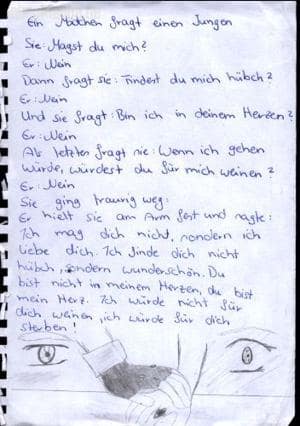 Ein Mädchen fragt einen Jungen
Sie: Magst du mich?
Er: Nein
Dann fragt sie: Findest du mich hübsch?
Er: Nein
Und sie fragt: Bin ich in deinem Herzen?
Er: Nein
Als letztes fragt sie: Wenn ich gehen
würde, würdest du für mich weinen?
Er: Nein
Sie ging traurig weg:
Er hielt sie am Arm fest und sagte:
Ich mag dich nicht, sondern ich
liebe dich. Ich finde dich nicht
hübsch, sondern wunderschön. Du
bist nicht in meinem Herzen, du bist
mein Herz. Ich würde nicht für
dich weinen, ich würde für dich
sterben!